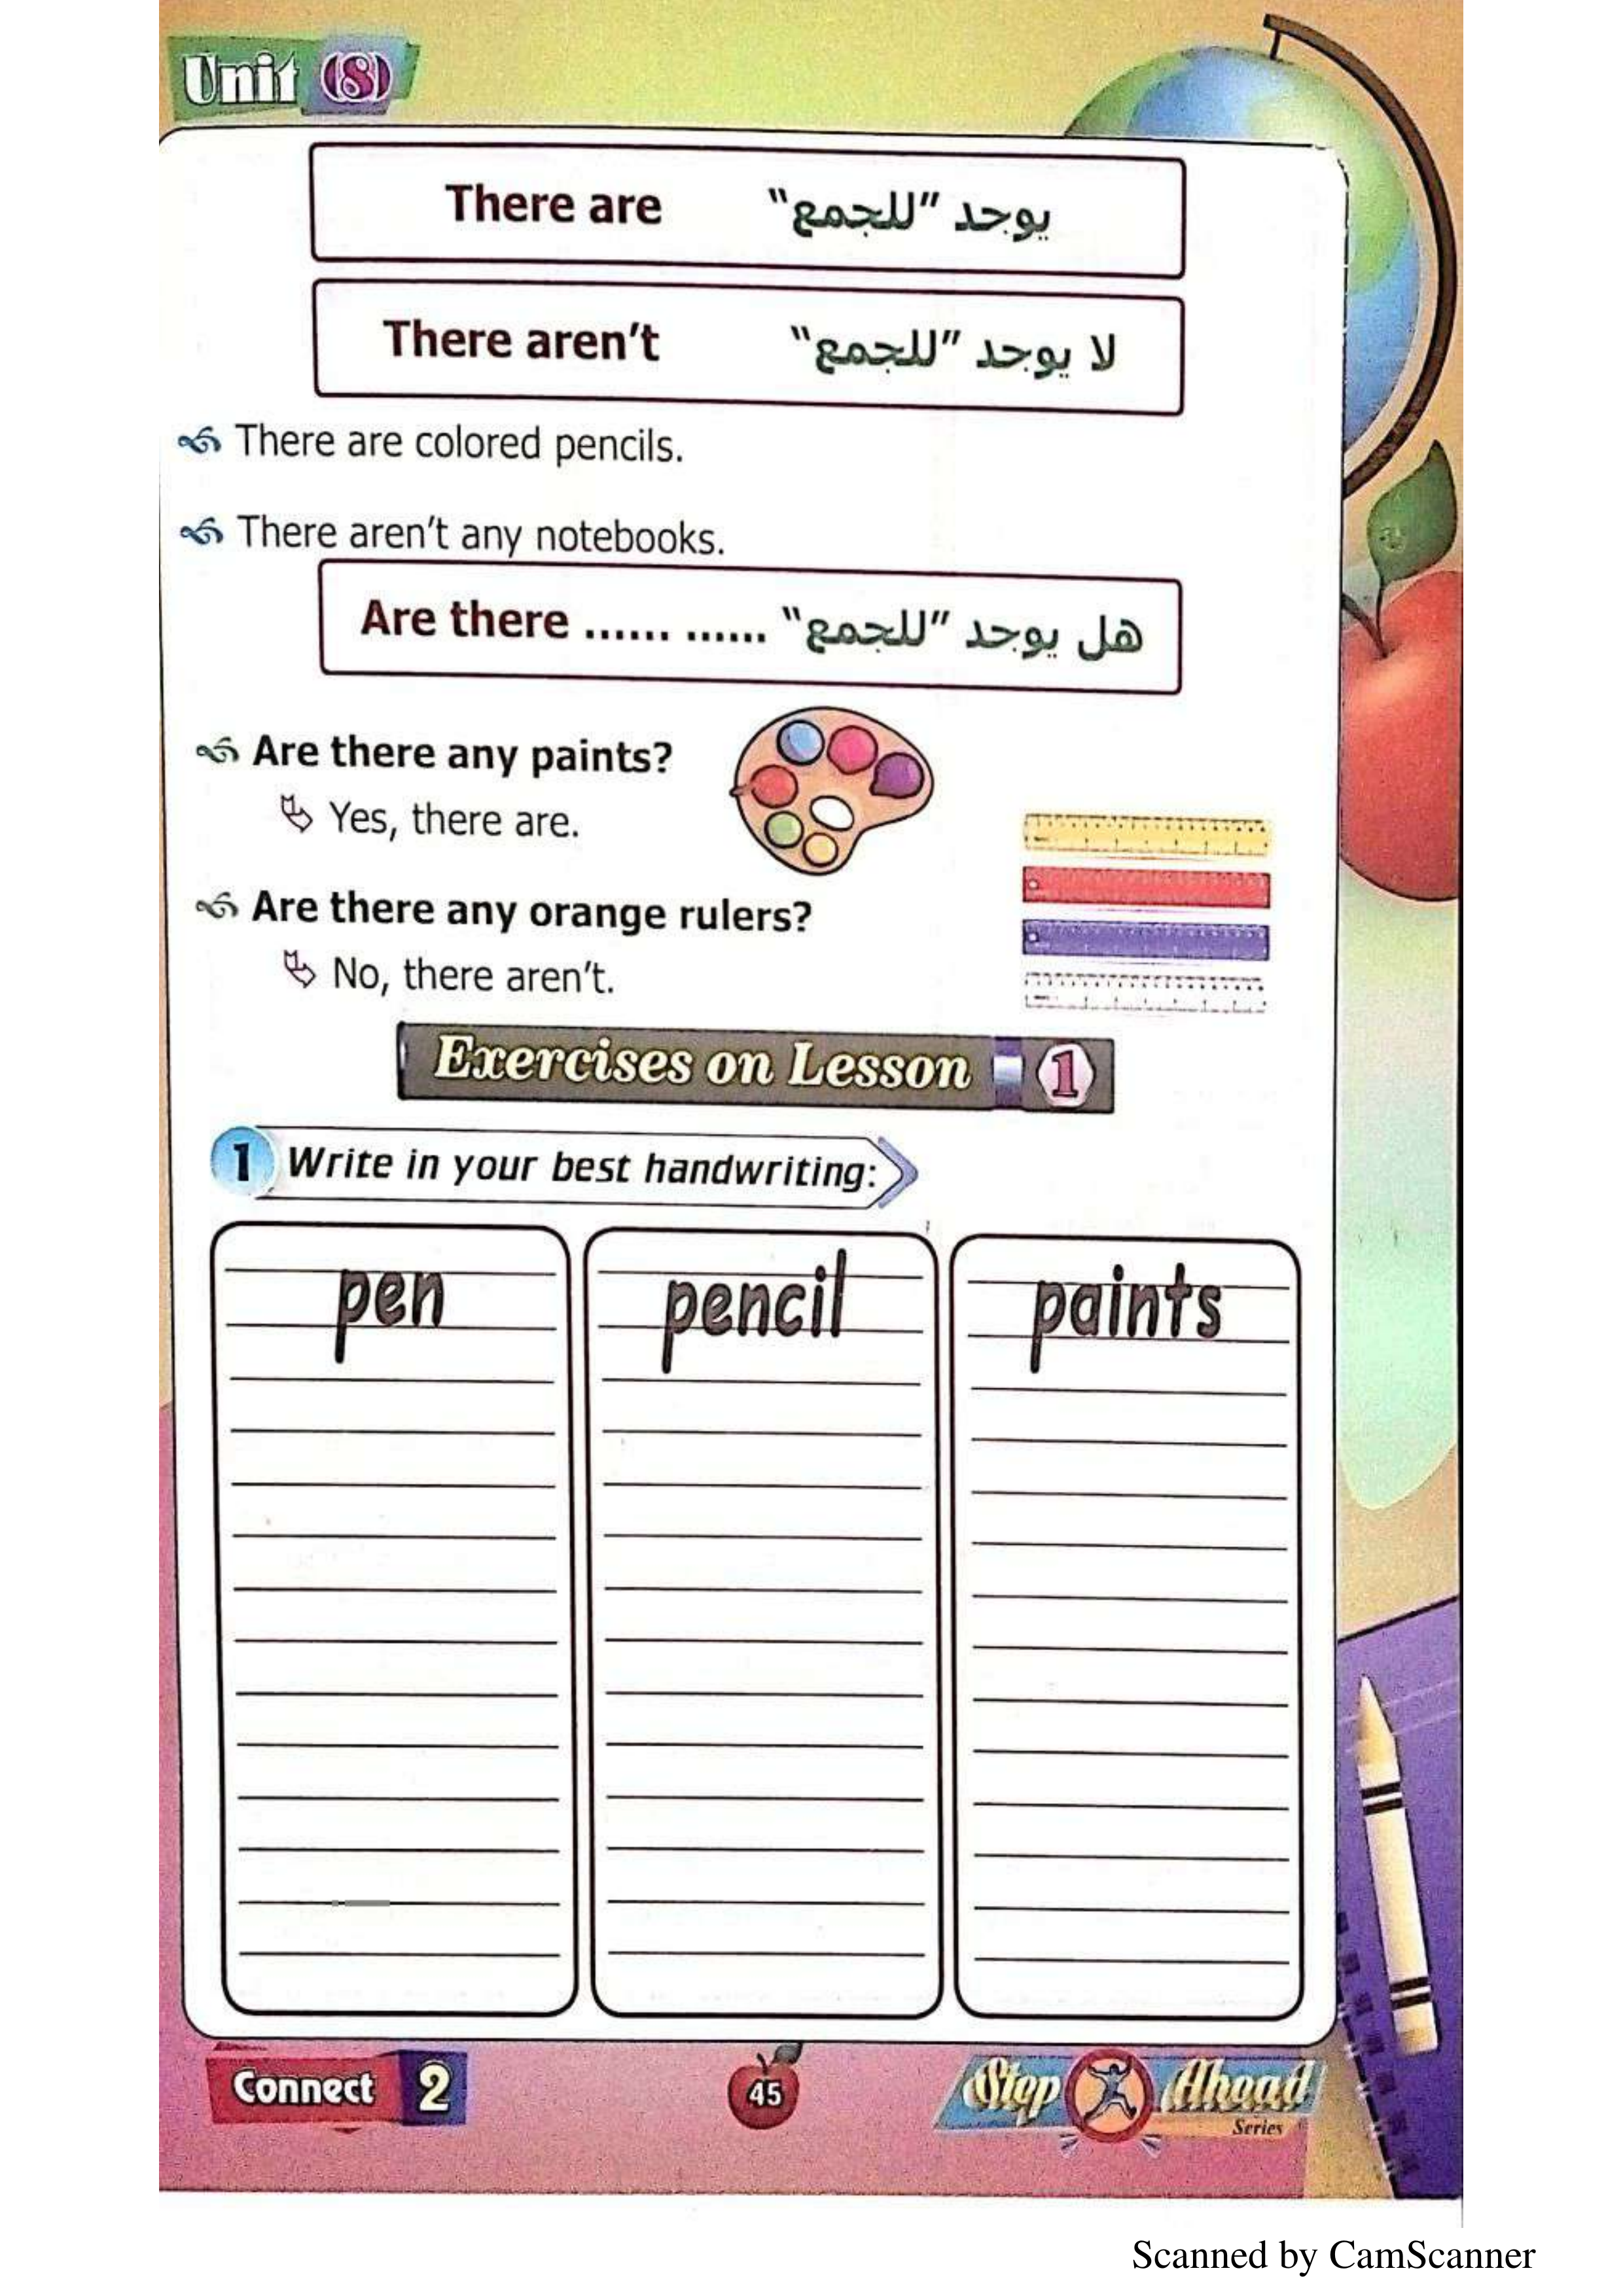 Unit (8)
There are يوجد "للجمع"
There aren't لا يوجد "للجمع"
There are colored pencils.
There aren't any notebooks.
Are there ...... ...... هل يوجد "للجمع"
Are there any paints?
Yes, there are.
Are there any orange rulers?
No, there aren't.
Exercises on Lesson 1
1 Write in your best handwriting:
pen pencil paints
Connect 2
45
Step Ahead
Series
Scanned by CamScanner